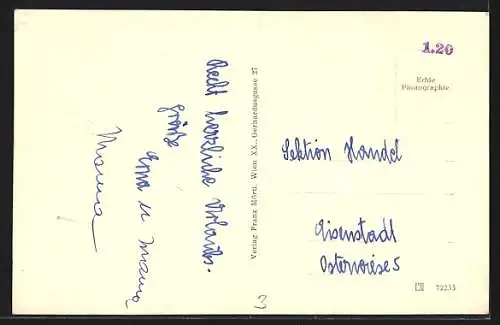 Recht herzliche Urlaubs-
grüße
Erna u Mama
Verlag Franz Mörtl, Wien XX., Gerhardusgasse 27
1.20
Echte
Photographie
Sektion Handel
Eisenstadt
Osterwiese 5
72235
3